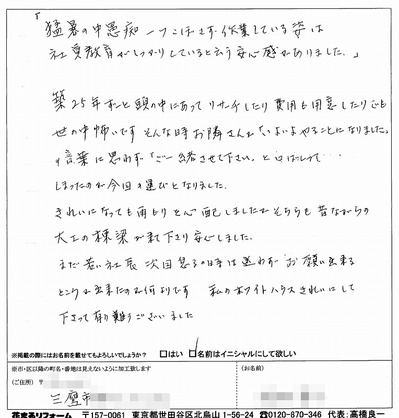 「猛暑の中愚痴一つこぼさず作業している姿は
社員教育がしっかりしていると云う安心感がありました。」
築25年ずっと頭の中にあってリサーチしたり費用も用意したりでも
世の中怖いです そんな時お隣さんが「いよいよやることになりました。」
の言葉に思わず「ご一緒させて下さい。」と口ばしって・・・
しまったのが今回の運びとなりました。
きれいになっても雨もりとか心配しましたがそちらも昔ながらの
大工の棟梁が来て下さり安心しました。
まだ若い社長 次回 の時は迷わずお願い出来る
ところが出来たのが何よりです 私のホワイトハウスきれいにして
下さって有り難うございました
※掲載の際にはお名前を載せてもよろしいでしょうか? □はい □名前はイニシャルにして欲しい
※市・区以降の町名・番地は見えないように加工致します
(ご住所) 〒
(お名前)
三鷹市
花まるリフォーム 〒157-0061 東京都世田谷区北烏山1-56-24 ☎0120-870-346 代表:高橋良一